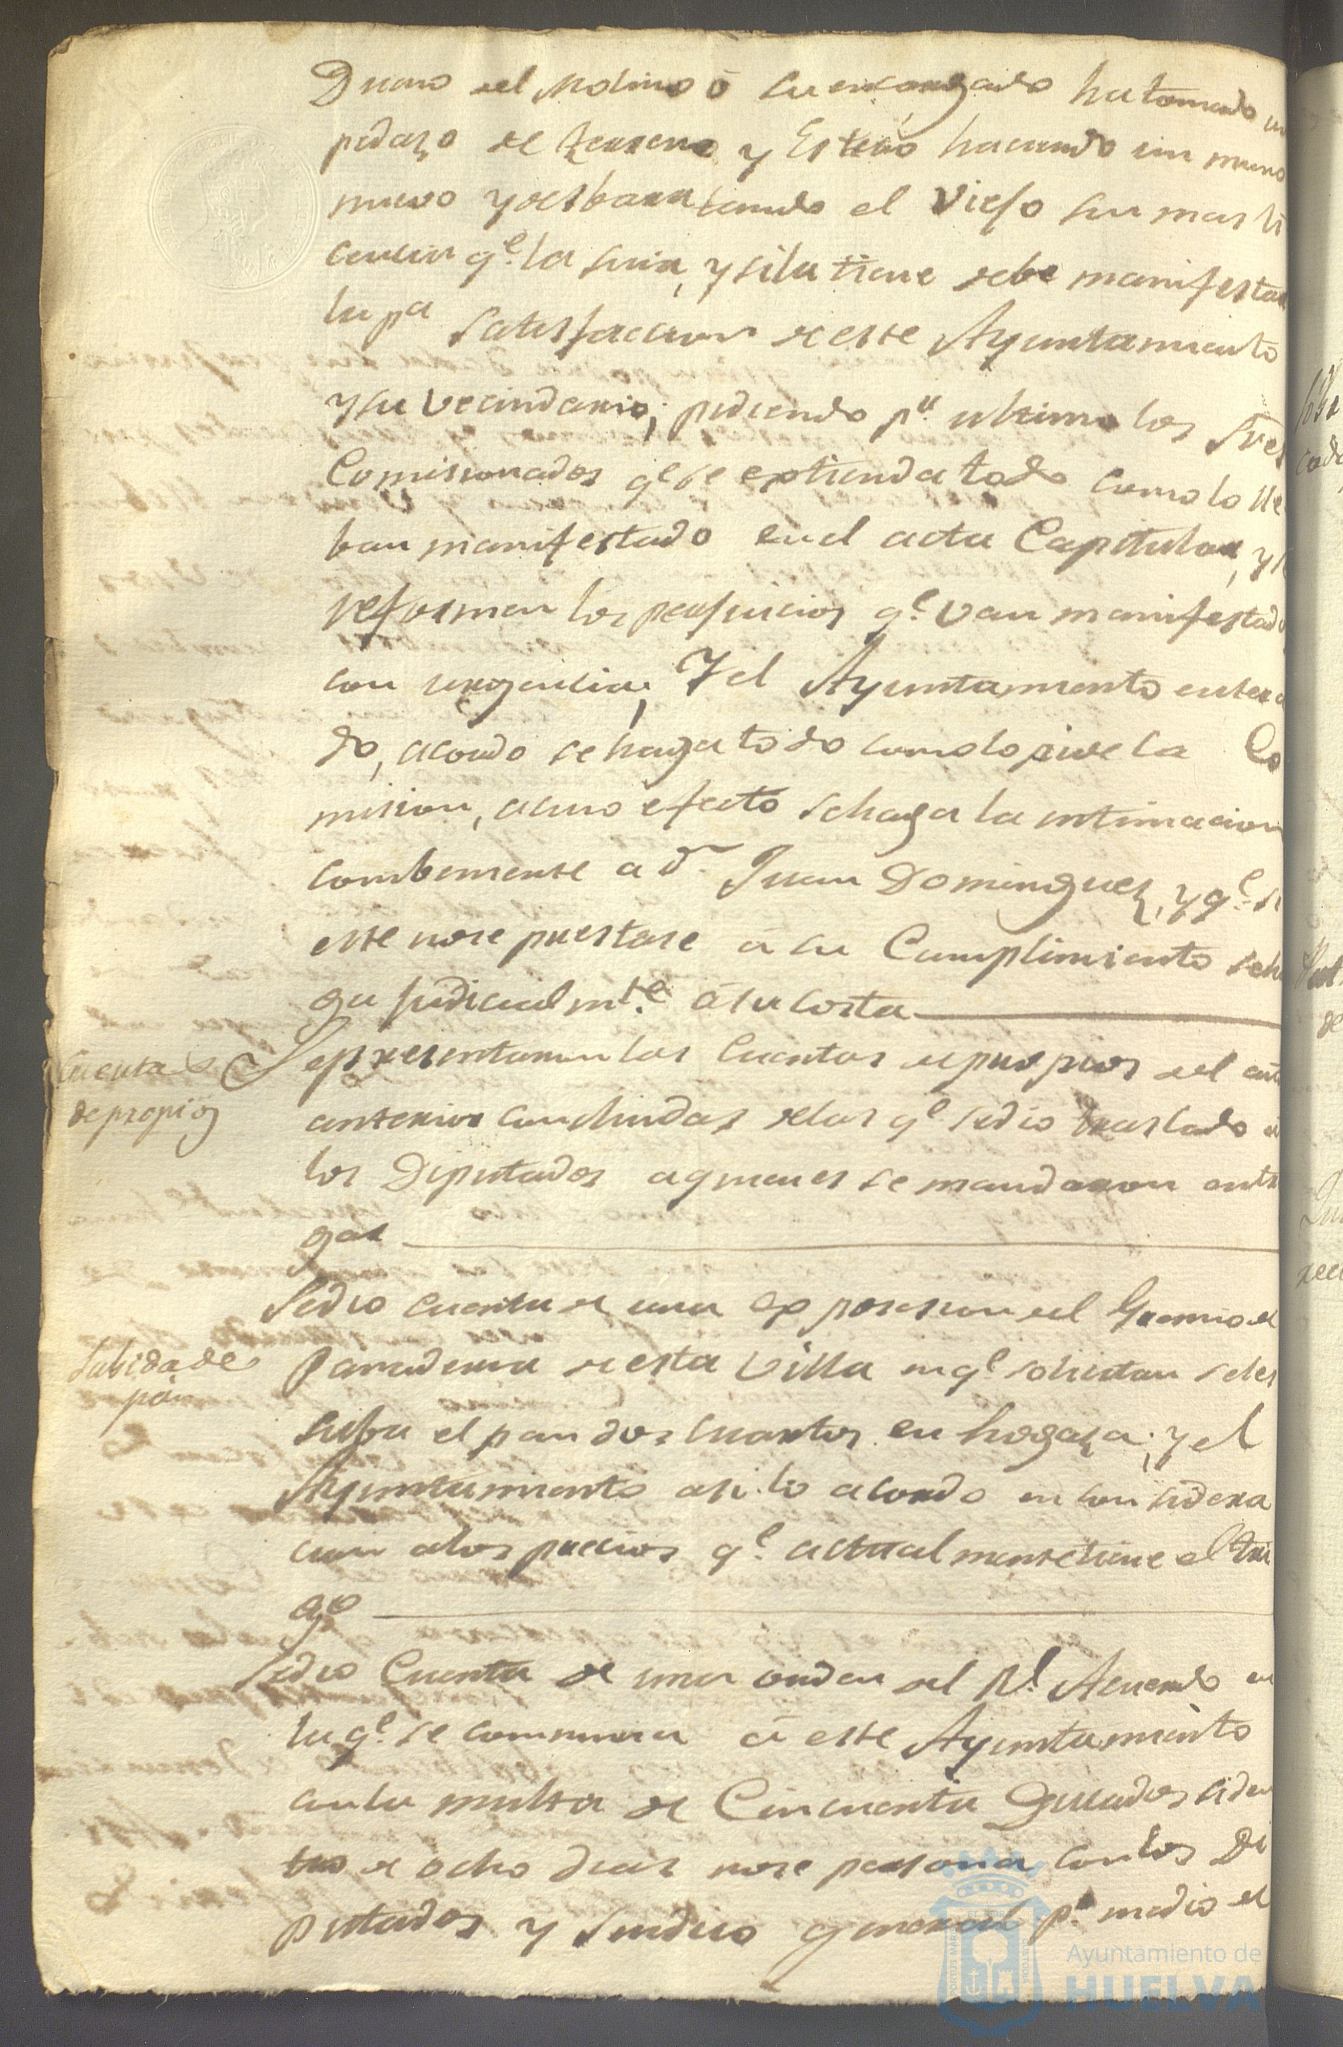 Dueno del Molino ó su encargado ha tomado un
pedazo de terreno y Estero haciendo un muro
nuevo y desbaratando el Viejo sin mas li
cencia qe. la suia, y si la tiene debe manifestar
la pa satisfaccion de este Ayuntamiento
y su vecindario; pidiendo pr. ultimo los Sres
Comisionados qe se extienda todo como lo lle
ban manifestado en el acta Capitular, y se
reformen los perjuicios qe. van manifestados
con urgencia; Y el Ayuntamiento entera
do, acordo se haga todo como lo pide la Co
mision, a cuio efecto se haga la intimacion
combeniente a Dn. Juan Dominguez, y qe. si
este no se prestase á su Cumplimiento se ha
ga judicialmte. á su costa
Cuentas
de propios
Se presentaron las Cuentas de propios del año
anterior concluidas delas qe. se dio traslado a
los Diputados a quienes se mandaron entre
gar
Se dio cuenta de una exposicion del Gremio de
Subida de
pan
Panaderia de esta Villa en qe. solicitan se les
suba el pan dos cuartos en hogaza; y el
Ayuntamiento asi lo acordo en considera
cion a los precios qe. actualmente tiene el tri
go
Se dio Cuenta de una orden del Rl. Acuerdo en
la qe. se conmina á este Ayuntamiento
con la multa de Cincuenta Ducados si den
tro de ocho dias no se persona con los Di
putados y Sindico general pr. medio de
Ayuntamiento de
HUELVA